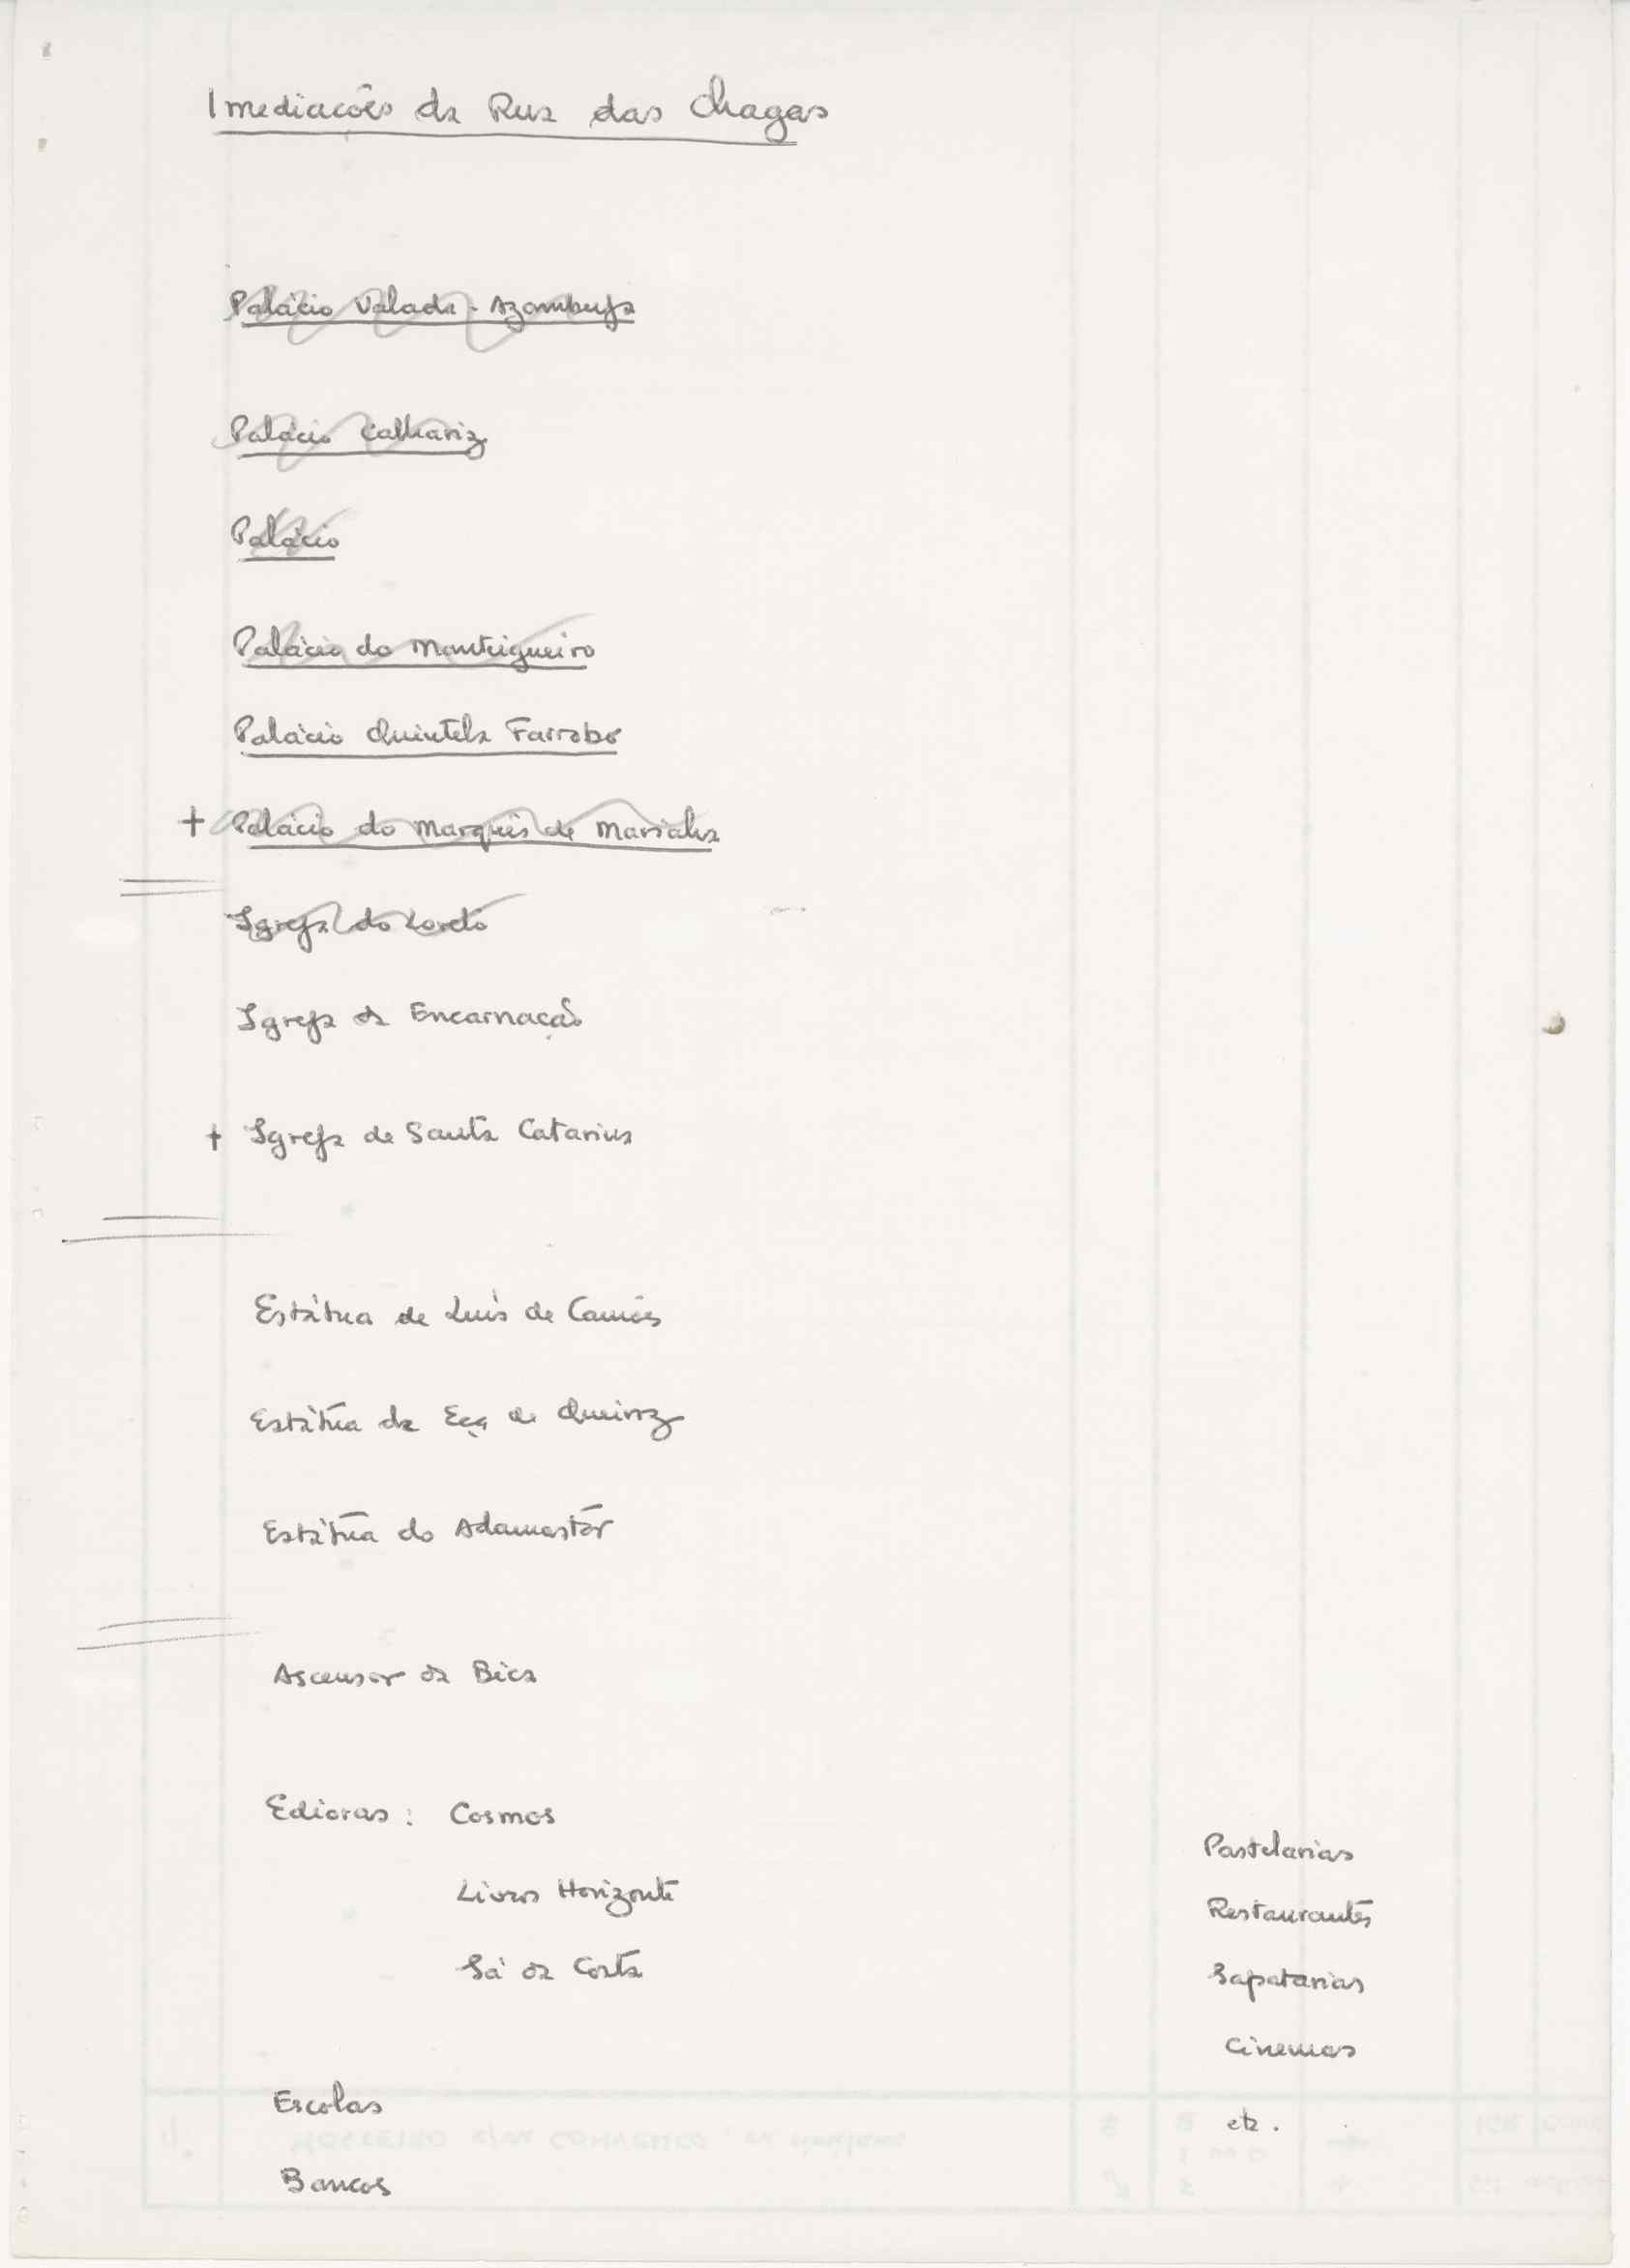 Imediacões da Rua das Chagas
Palácio Valada-Azambuja
Palácio Calhariz
Palácio
Palácio do Manteigueiro
Palácio Quintela Farrobo
+ Palácio do Marquês de Marialva
Igreja do Loreto
Igreja da Encarnação
+ Igreja de Santa Catarina
Estátua de Luís de Camões
Estátua de Eça de Queiroz
Estátua do Adamastor
Ascensor da Bica
Edioras: Cosmos
Livros Horizonte
Sá da Costa
Escolas
Bancos
Pastelarias
Restaurantes
Sapatarias
Cinemas
etc.